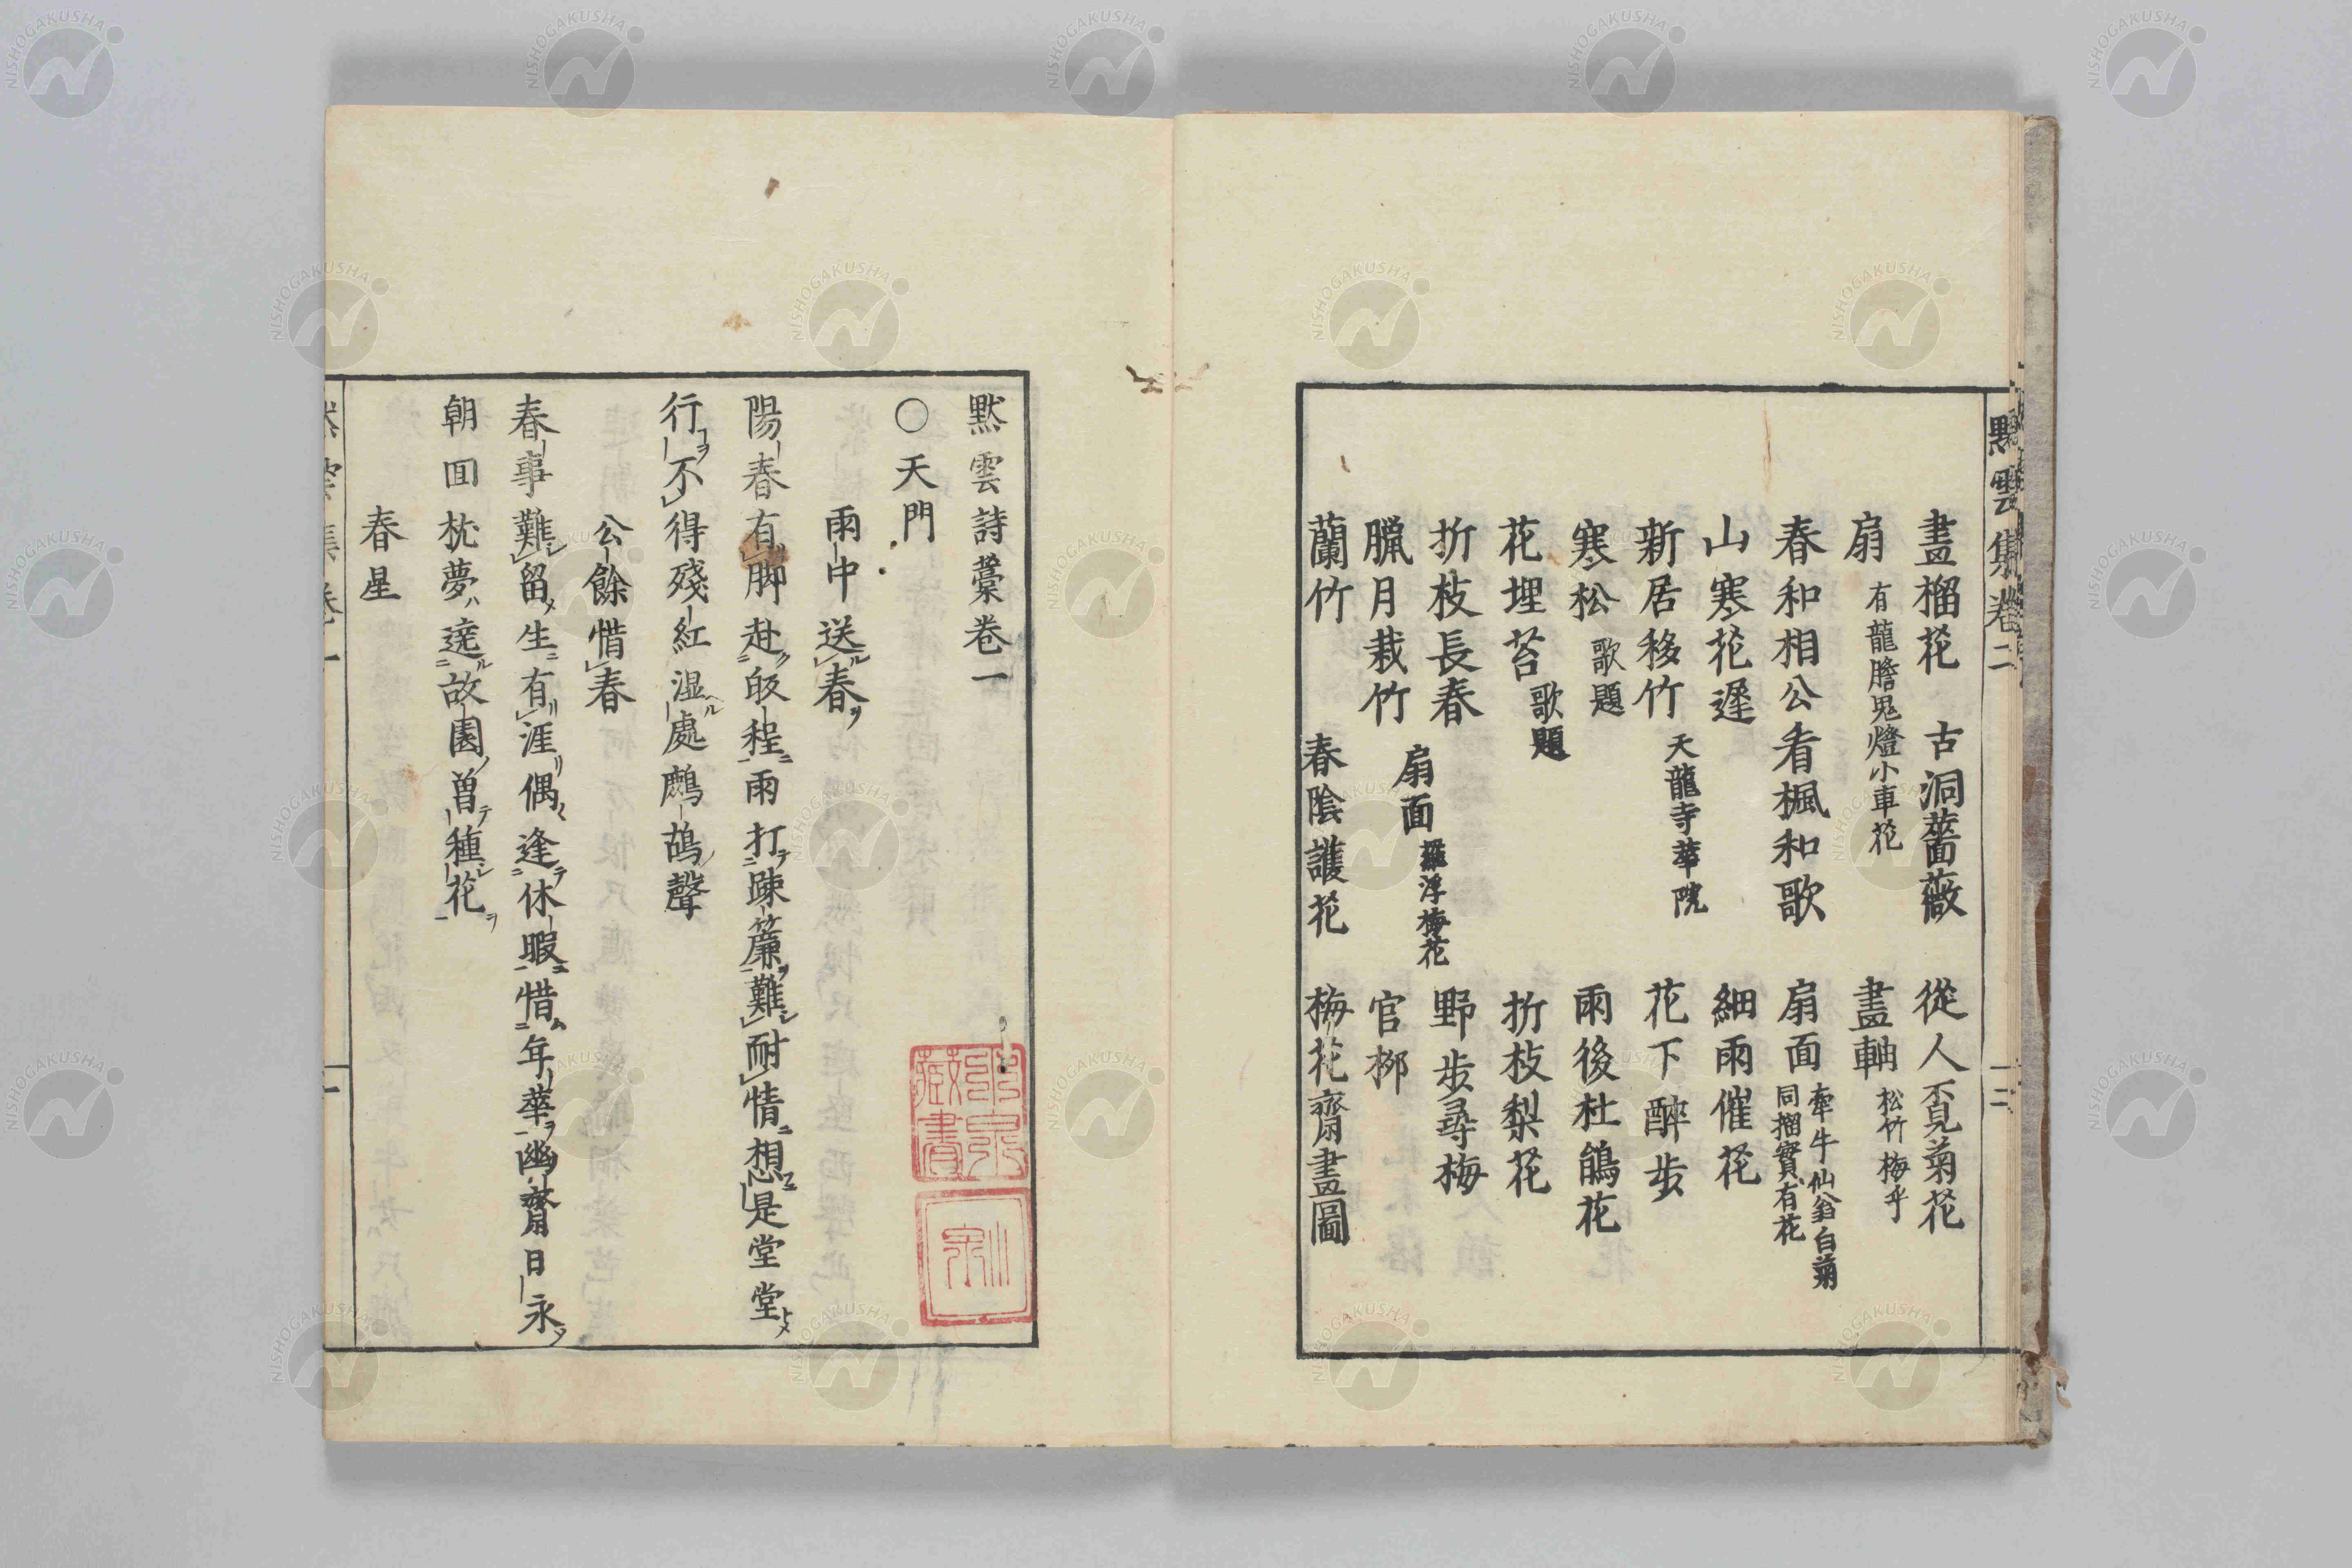 默雲集卷二
畫榴花　古洞薔薇　從人覓菊花
扇　有龍膽鬼燈小車花　畫軸　松竹梅乎
春和相公看楓和歌　扇面　牽牛仙翁白菊
同榴實有花
山寒花遲　細雨催花
新居移竹　天龍寺華院　花下醉步
寒松　歌題　雨後杜鵑花
花埋苔　歌題　折枝梨花
折枝長春　扇面　羅浮梅花　野步尋梅
臘月栽竹　官柳
蘭竹　春陰護花　梅花齋畫圖
默雲詩藁卷一
○天門
雨中送ル春ヲ
陽春有脚赴皈程雨打疎簾難耐情想是堂堂
行不得殘紅湿處鷓鴣聲
公餘惜春
春事難留生有涯偶逢休暇惜年華幽齋日永
朝囬枕夢遶故園曽種花
春星
藏書
NISHOGAKUSHA